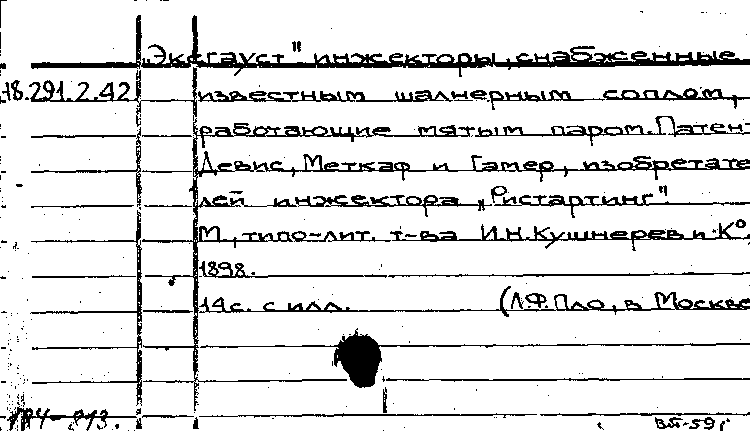 „Экегауст" инжекторы, снабженные
18.291.2.42 известным шалнерным соплом,
работающие мятым паром. Патент
Девис, Меткаф и Гамер, изобретате
лей инжектора „Ристартинг"
М., типо-лит. т-ва И.Н. Кушнерев и К°,
1898.
14 с. с илл. (Л.Ф. Пло, в Москве
184-813. ВП-59г